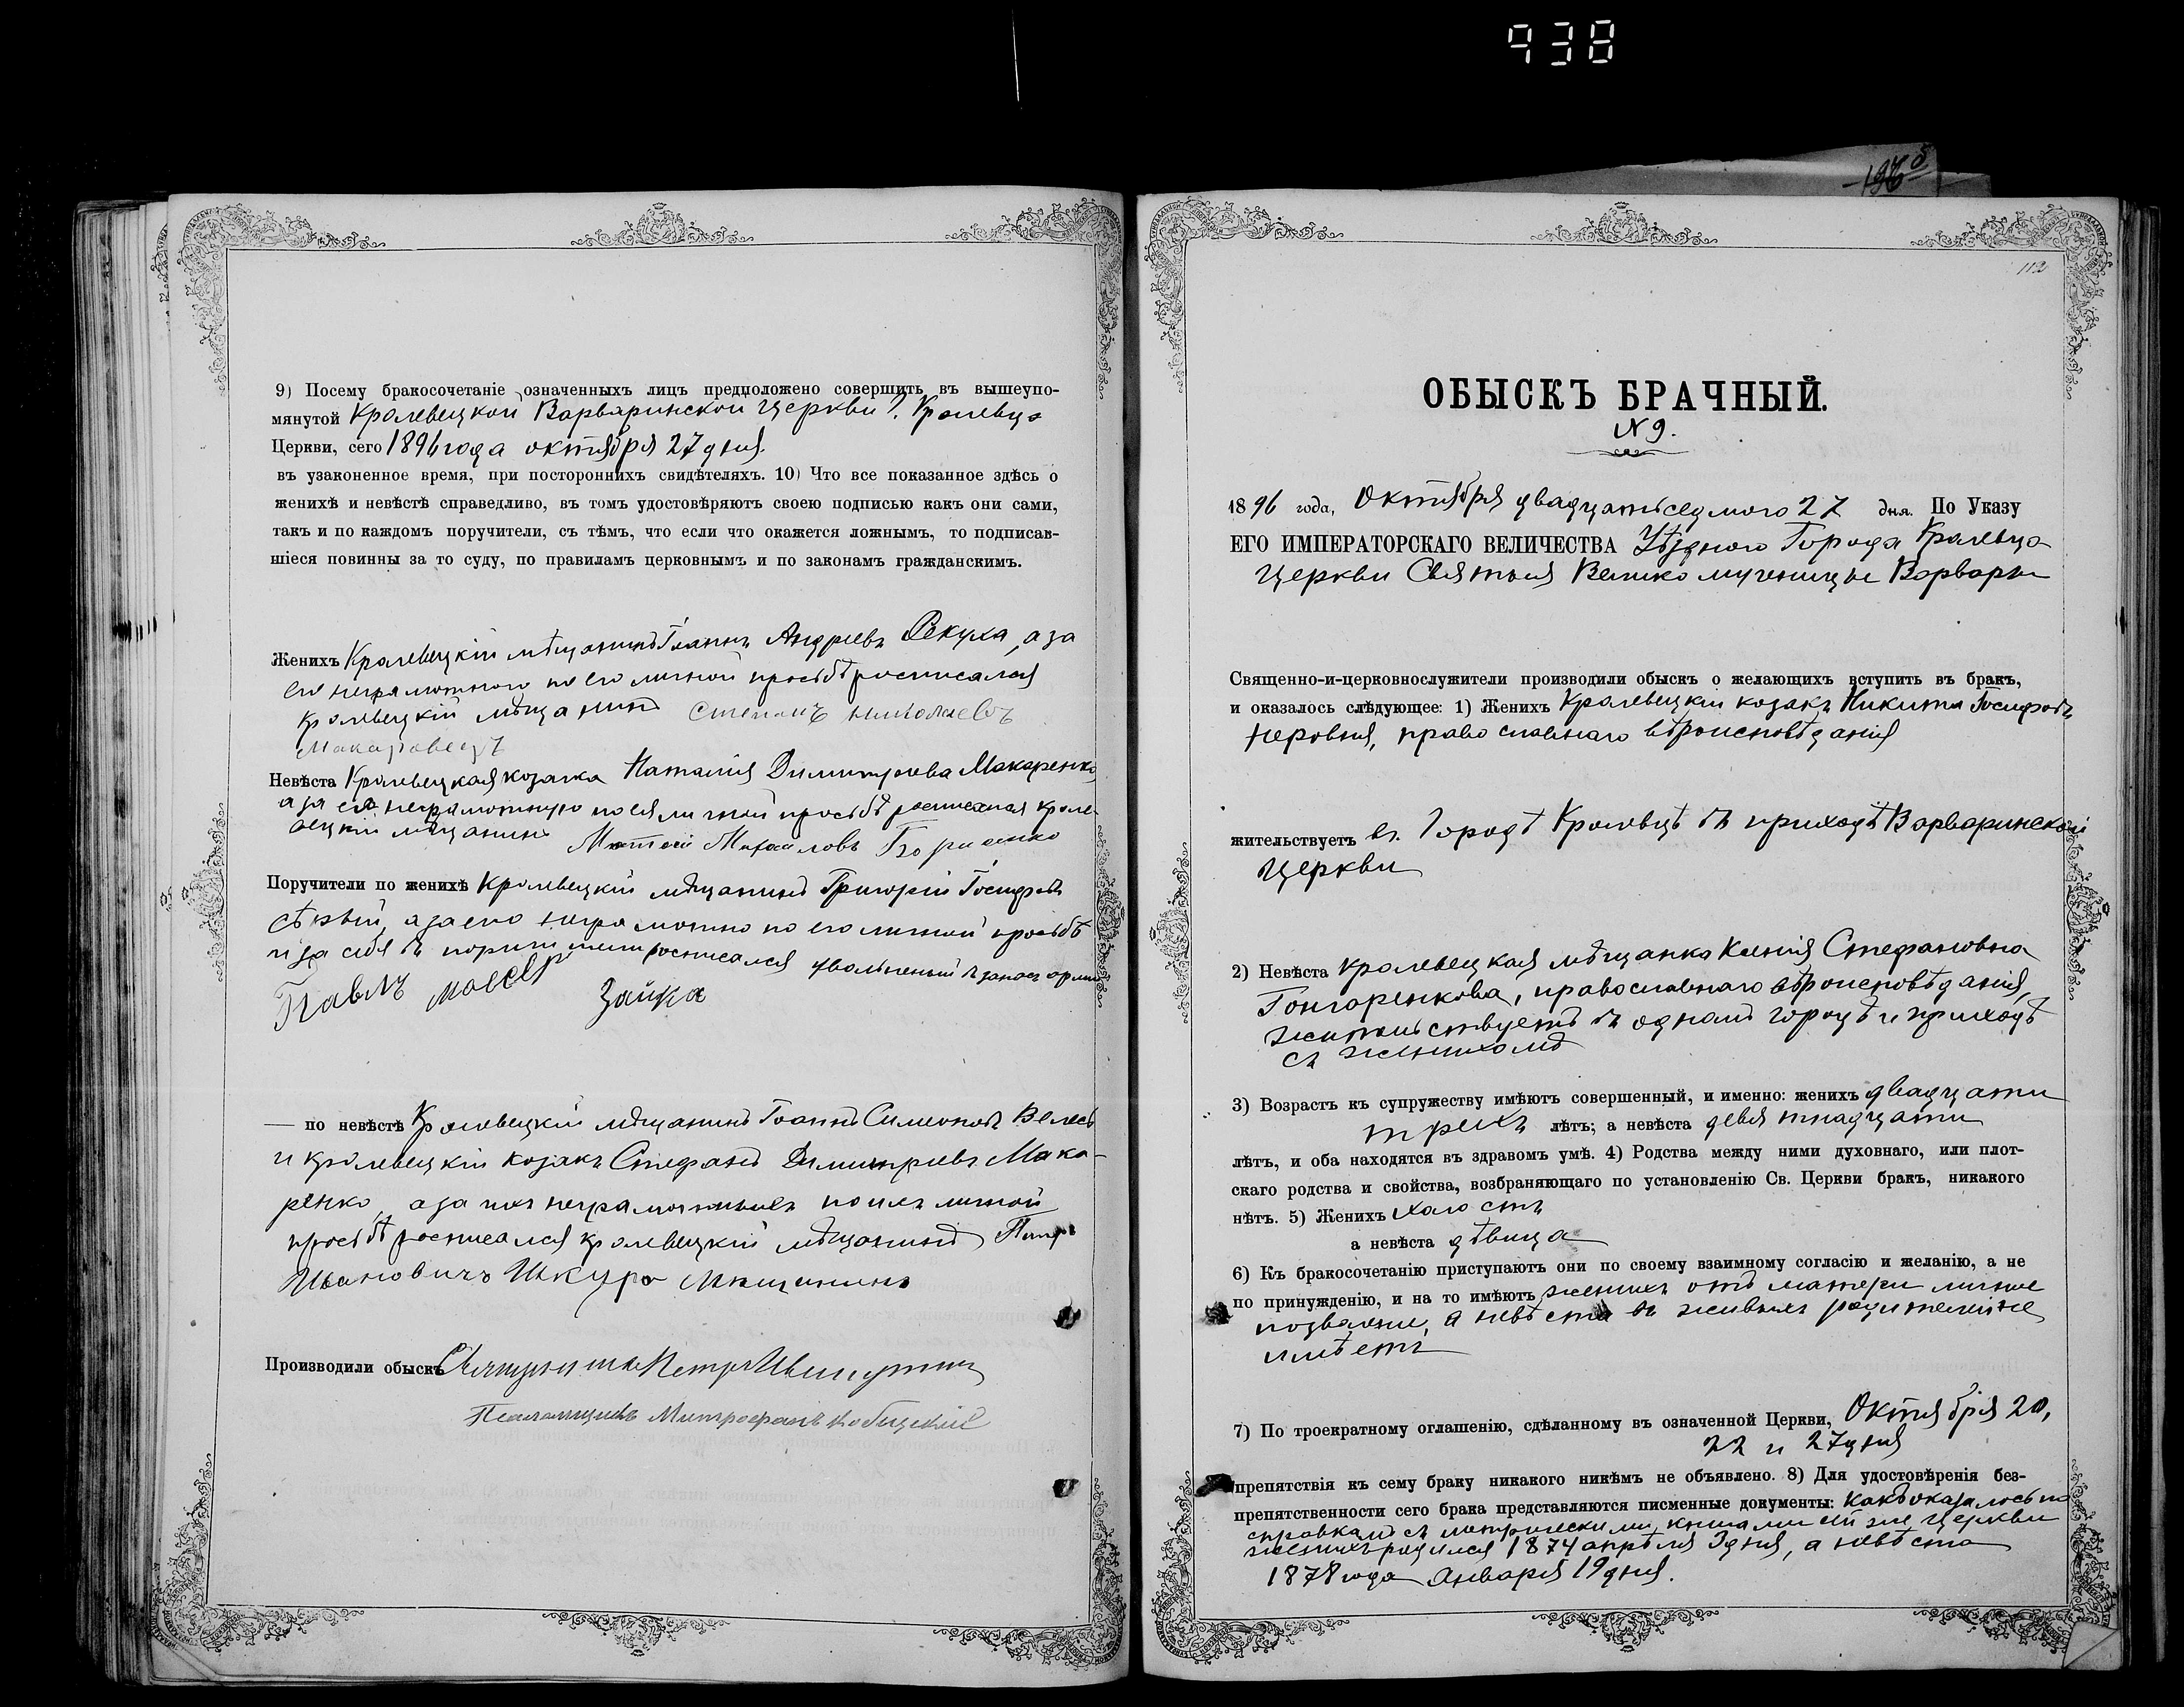 938
112
9) Посему бракосочетаніе означенныхъ лицъ предположено совершить въ вышеупо-
мянутой Кролевецкой Варваринской Церкви г. Кролевца
Церкви, сего 1896 года октября 27 дня.
въ узаконенное время, при постороннихъ свидѣтеляхъ. 10) Что все показанное здѣсь о
женихѣ и невѣстѣ справедливо, въ томъ удостовѣряютъ своею подписью какъ они сами,
такъ и по каждомъ поручители, съ тѣмъ, что если что окажется ложнымъ, то подписав-
шіеся повинны за то суду, по правиламъ церковнымъ и по законамъ гражданскимъ.
Женихъ Кролевецкій мѣщанинъ Іоаннъ Андреевъ Секуха, а за
его неграмотного по его личной просьбѣ росписался
кролевецкій мѣщанинъ Степанъ Николаевъ
Макаровецъ
Невѣста Кролевецкая козачка Наталія Димитріева Макаренко,
а за ея неграмотную по ея личной просьбѣ росписался кроле-
вецкій мѣщанинъ Матвей Михайловъ Борисенко
Поручители по женихѣ Кролевецкій мѣщанинъ Григорій Іосифовъ
Сѣрый, а за его неграмотно по его личной просьбѣ
и за себя въ поручители росписался уволенный въ запасъ арміи
Павлъ Зайка
— по невѣстѣ Кролевецкій мѣщанинъ Іоаннъ Симеоновъ Велесъ
и кролевецкій козакъ Стефанъ Димитріевъ Мака-
ренко, а за ихъ неграмотныхъ по ихъ личной
просьбѣ росписался кролевецкій мѣщанинъ Петръ
Ивановичъ Шкура Мещанинъ
Производили обыскъ Священникъ Петръ
Псаломщикъ Митрофанъ Кобицскій
ОБЫСКЪ БРАЧНЫЙ.
N 9.
1896 года, Октября двадцать седмого 27 дня. По Указу
ЕГО ИМПЕРАТОРСКАГО ВЕЛИЧЕСТВА Уѣздного Города Кролевца
Церкви Святыя Великомученицы Варвары
Священно-и-церковнослужители производили обыскъ о желающихъ вступить въ бракъ,
и оказалось слѣдующее: 1) Женихъ Кролевецкій козакъ Никита Іосифовъ
Неровня, православнаго вѣроисповѣданія
жительствуетъ въ Городѣ Кролевцѣ въ приходѣ Варваринской
Церкви
2) Невѣста кролевецкая мѣщанка Ксенія Стефановна
Гончаренкова, православнаго вѣроисповѣданія,
жительствуетъ въ одномъ городѣ и приходѣ
съ женихомъ
3) Возрастъ къ супружеству имѣютъ совершенный, и именно: женихъ двадцати
трехъ лѣтъ; а невѣста девятнадцати
лѣтъ, и оба находятся въ здравомъ умѣ. 4) Родства между ними духовнаго, или плот-
скаго родства и свойства, возбраняющаго по установленію Св. Церкви бракъ, никакого
нѣтъ. 5) Женихъ холостъ
а невѣста дѣвица
6) Къ бракосочетанію приступаютъ они по своему взаимному согласію и желанію, а не
по принужденію, и на то имѣютъ женихъ отъ матери личное
позволеніе, а невѣста въ живыхъ родителей не
имѣетъ
7) По троекратному оглашенію, сдѣланному въ означенной Церкви, Октября 20,
22 и 27 дня
препятствія къ сему браку никакого никѣмъ не объявлено. 8) Для удостовѣренія без-
препятственности сего брака представляются писменные документы: какъ оказалось по
справкамъ съ метрическими книгами сей же Церкви
женихъ родился 1874 апрѣля 3 дня, а невѣста
1878 года Января 19 дня.